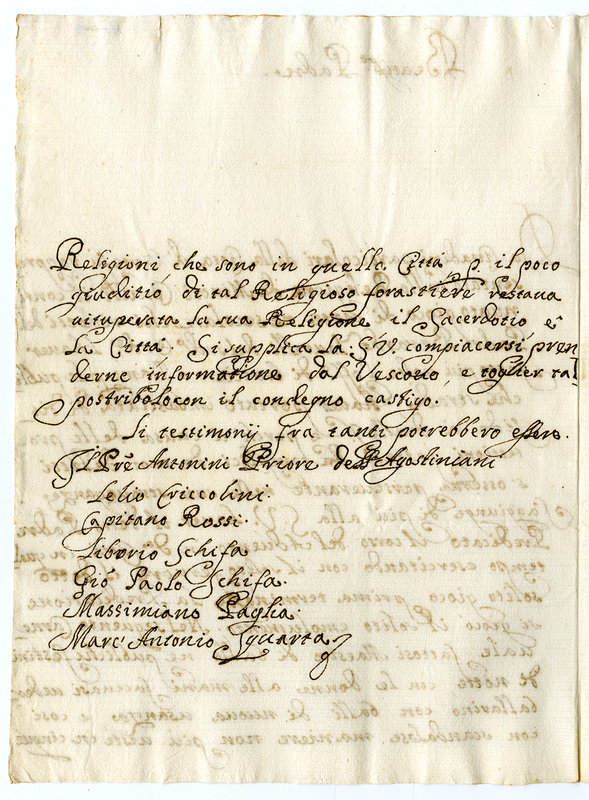 Religioni che sono in quella Città p. il poco
giuditio di tal Religioso forastiere restaua
uituperata la sua Religione il Sacerdotio e
la Città. Si supplica la S.V. compiacersi pren
derne informatione dal Vescouo, e toglier tal
postribolo con il condegno castigo.
Li testimonij fra tanti potrebbero essere.
Il Pre Antonini Priore de PP Agostiniani
Lelio Criccolini.
Capitano Rossi.
Liborio Schifa
Gio Paolo Schifa.
Massimiano Paglia.
Marc' Antonio Sguarta